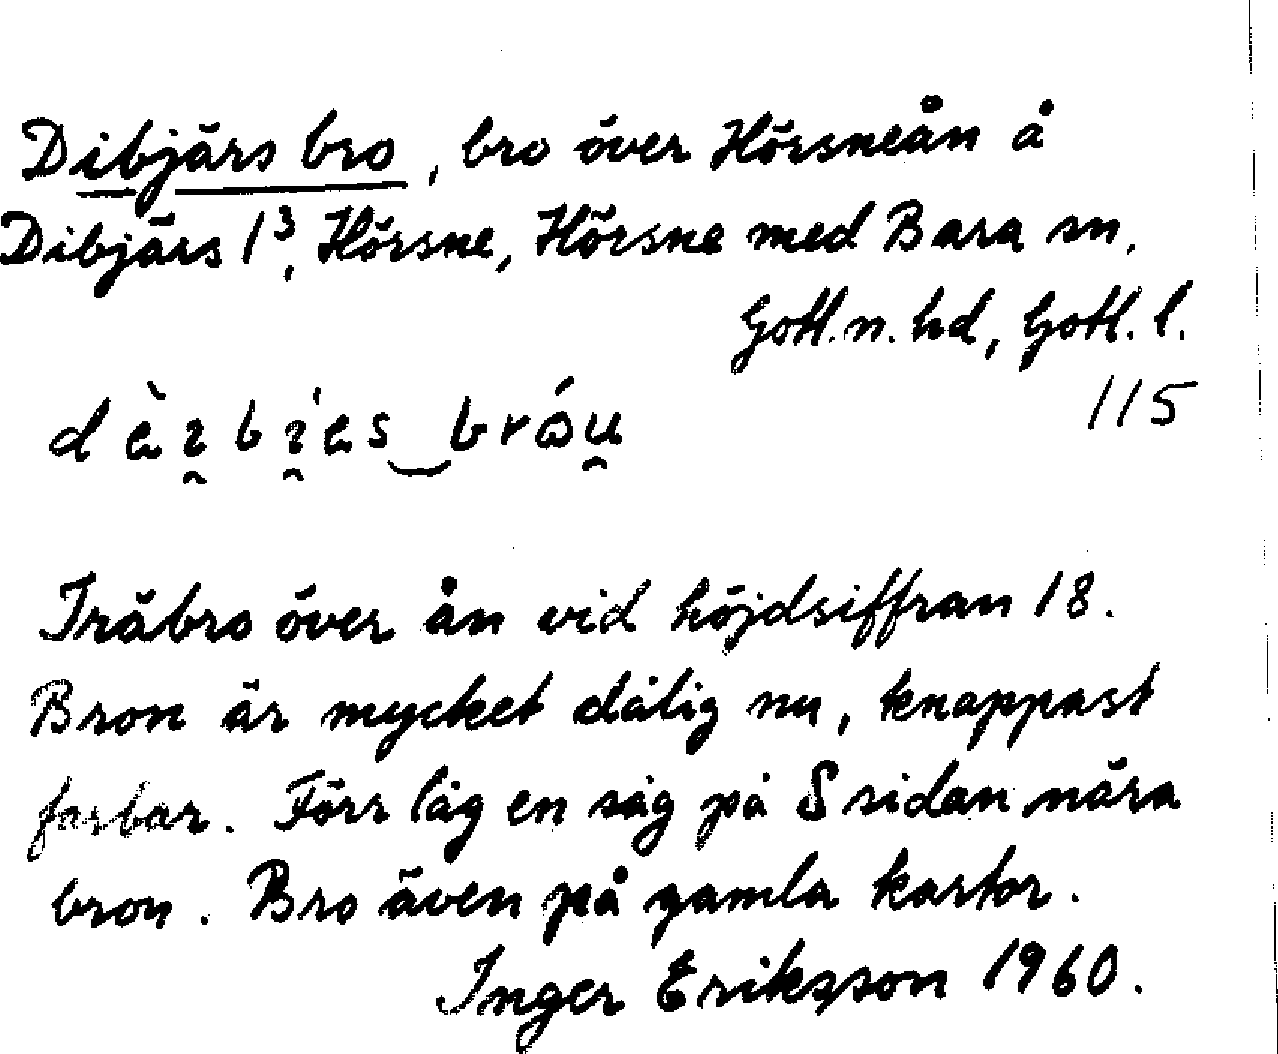 Dibjärs bro, bro över Hörsneån å
Dibjärs 1³, Hörsne, Hörsne med Bara sn,
Gotl. n. hd, Gotl. l.
115
Träbro över ån vid höjdsiffran 18.
Bron är mycket dålig nu, knappast
farbar. Förr låg en såg på S sidan nära
bron. Bro även på gamla kartor.
Inger Eriksson 1960.